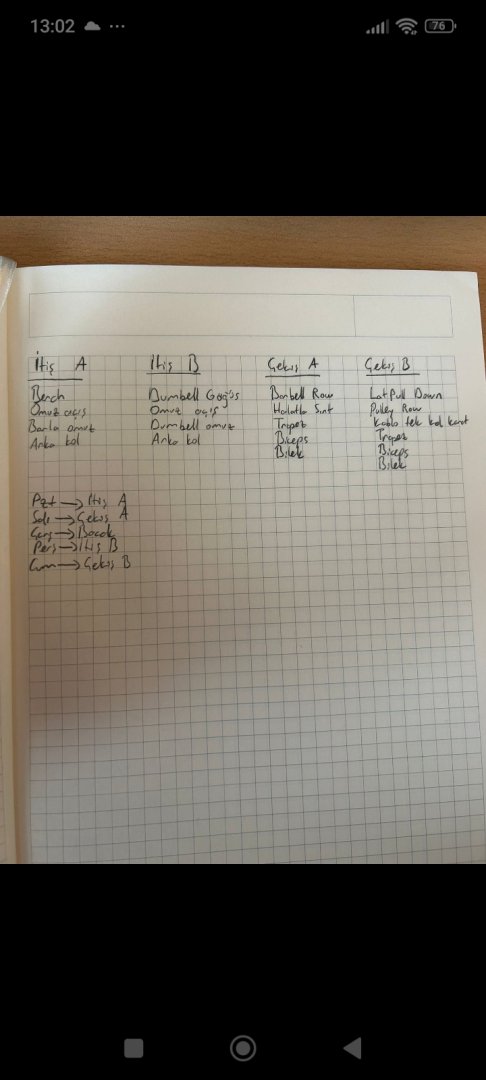 13:02
76
İtiş A
Bench
Omuz açış
Barla omuz
Arka kol
İtiş B
Dumbell Göğüs
Omuz açış
Dumbell omuz
Arka kol
Çekiş A
Barbell Row
Halatla Sırt
Trapez
Biceps
Bilek
Çekiş B
Lat Pull Down
Pulley Row
Kablo tek kol kanat
Trapez
Biceps
Bilek
Pzt → İtiş A
Salı → Çekiş A
Çarş → Bacak
Perş → İtiş B
Cum → Çekiş B